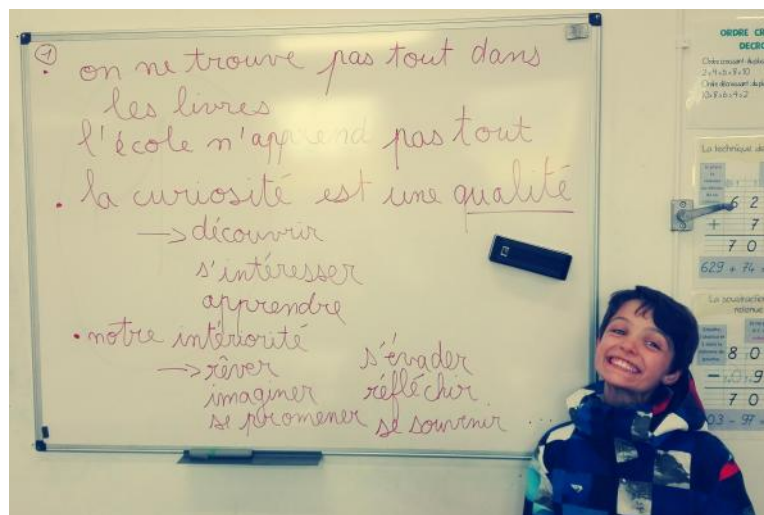 ①
• on ne trouve pas tout dans
les livres
l'école n'apprend pas tout
• la curiosité est une qualité
→ découvrir
s'intéresser
apprendre
• notre intériorité
→ rêver s'évader
imaginer réfléchir
se promener se souvenir ...
ORDRE CR
DECRO
2<4<6<8<10
10>8>6>4>2
La technique de
6 2
+ 7
7 0
629 + 74 =
La soustraction
retenue
8 0
- 9
7 0
03 - 97 =